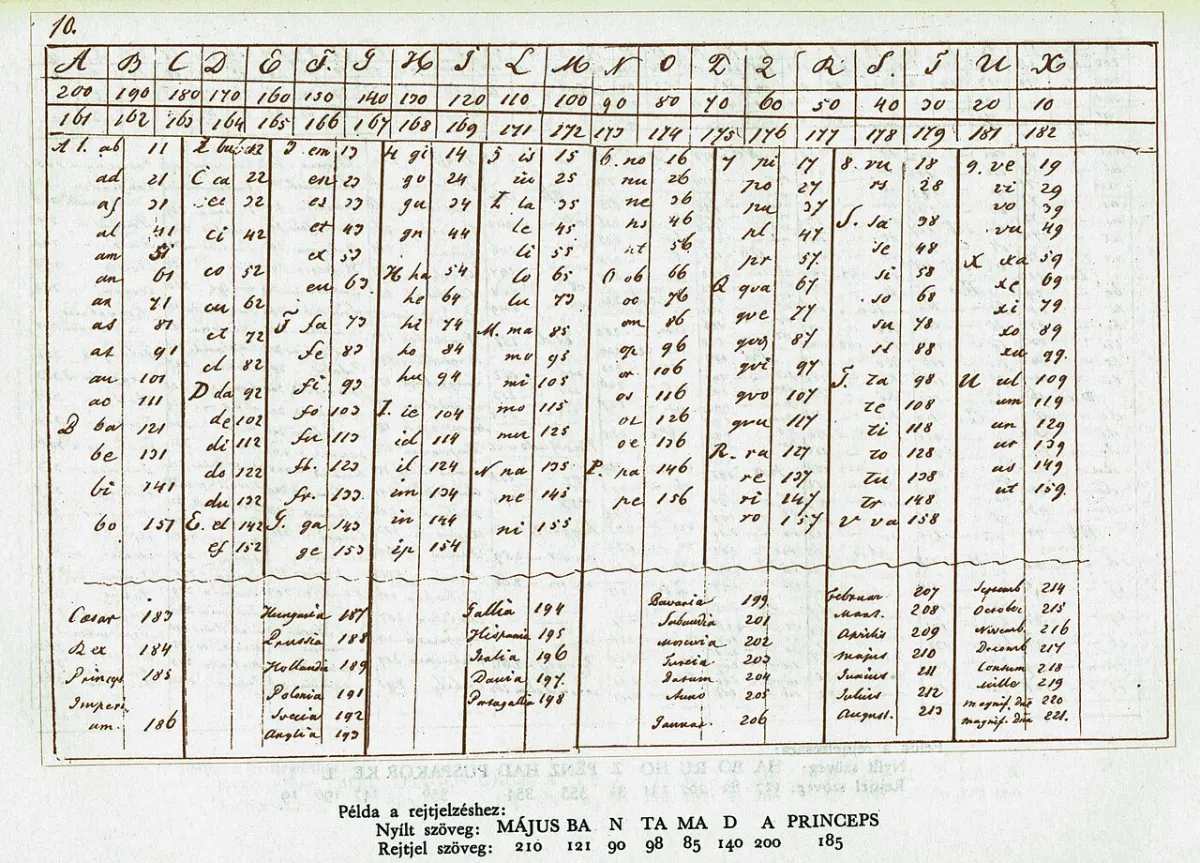 10.
A B C D E F. G H I L M N O P Q R S. T U X
200 190 180 170 160 150 140 130 120 110 100 90 80 70 60 50 40 30 20 10
161 162 163 164 165 166 167 168 169 171 172 173 174 175 176 177 178 179 181 182
A 1. ab 11 2 bu 12 3 em 13 4 gi 14 5 is 15 6. no 16 7 pi 17 8. ru 18 9. ve 19
ad 21 C ca 22 en 23 go 24 iu 25 nu 26 po 27 rs 28 vi 29
af 31 ce 32 es 33 gu 34 L la 35 ne 36 pu 37 S. sa 38 vo 39
al 41 ci 42 et 43 gn 44 le 45 ns 46 pl 47 se 48 vu 49
am 51 co 52 ex 53 H ha 54 li 55 nt 56 pr 57 si 58 X xa 59
an 61 cu 62 eu 63 he 64 lo 65 O ob 66 Q qua 67 so 68 xe 69
ar 71 ct 72 F fa 73 hi 74 lu 75 oc 76 que 77 su 78 xi 79
as 81 cl 82 fe 83 ho 84 M. ma 85 om 86 quos 87 st 88 xo 89
at 91 D da 92 fi 93 hu 94 me 95 96 qui 97 T. ta 98 xu 99.
au 101 de 102 fo 103 I. ic 104 mi 105 or 106 quo 107 te 108 U ul 109
ac 111 di 112 fu 113 id 114 mo 115 os 116 quu 117 ti 118 um 119
B ba 121 do 122 fl. 123 il 124 mu 125 ot 126 R. ra 127 to 128 un 129
be 131 du 132 fr. 133 im 134 N na 135 oe 136 re 137 tu 138 ur 139
bi 141 E. el 142 G. ga 143 in 144 ne 145 P. pa 146 ri 147 tr 148 us 149
bo 151 ef 152 ge 153 ip 154 ni 155 pe 156 ro 157 V va 158 ut 159.
Caesar 183 Hungaria 187 Gallia 194 Bavaria 199 Februar 207 Septemb 214
Rex 184 Prussia 188 Hispania 195 Sabaudia 201 Mart. 208 Octobr 215
Princeps 185 Hollandia 189 Italia 196 Moscvia 202 Aprilis 209 Novemb. 216
Imperi Polonia 191 Dania 197. Turcia 203 Majus 210 Decemb 217
um. 186 Svecia 192 Portugallia 198 Datum 204 Junius 211 Centum 218
Anglia 193 Anno 205 Julius 212 Mille 219
Januar. 206 August. 213 magnif. dno 220
magnif. dna 221.
Példa a rejtjelzéshez:
Nyílt szöveg: MÁJUS BA N TA MA D A PRINCEPS
Rejtjel szöveg: 210 121 90 98 85 140 200 185